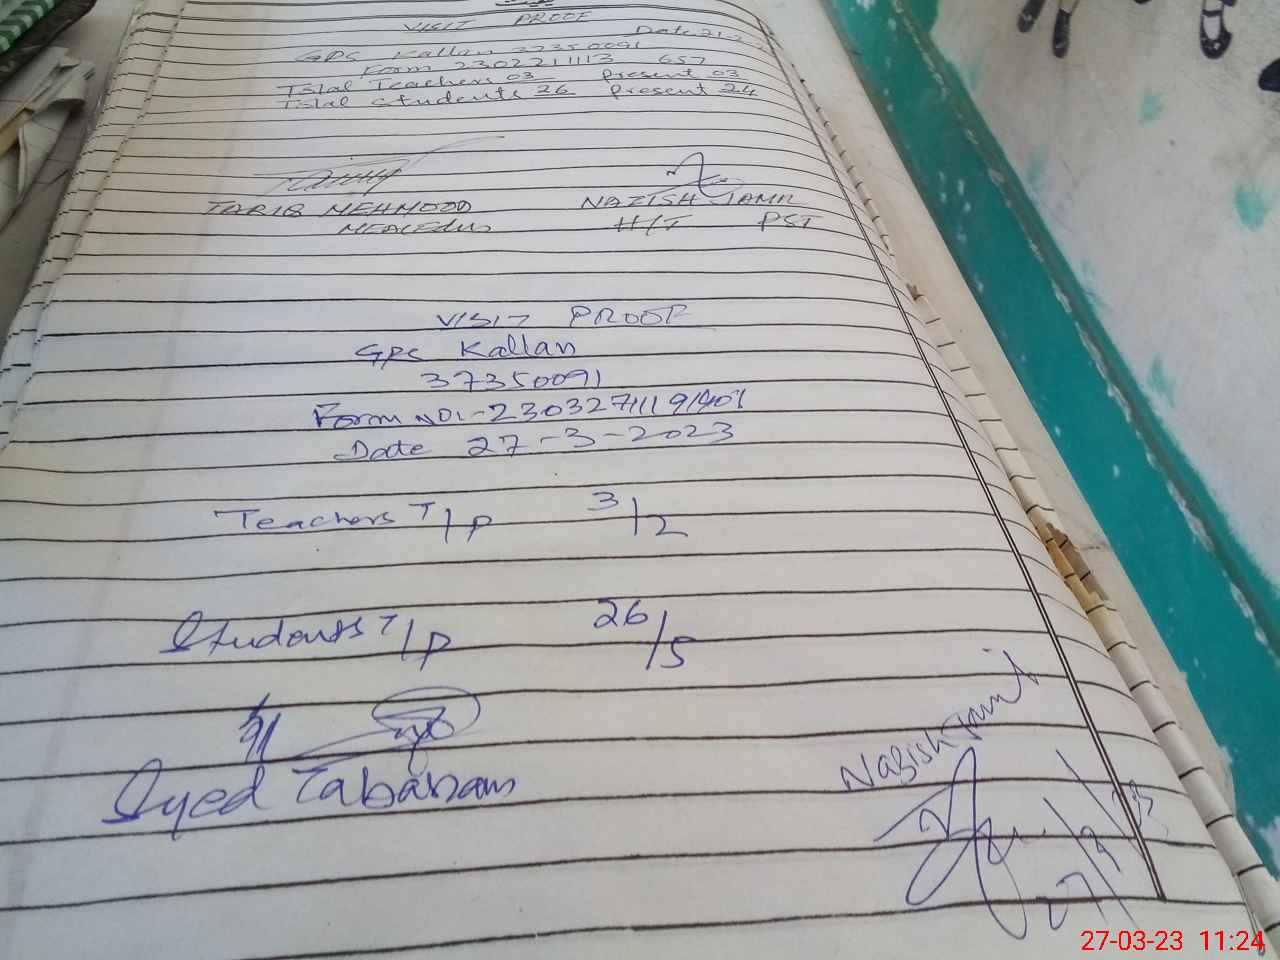 VISIT PROOF
Date 21-2
GPS Kallan 37350091
Form 2302211113 657
Total Teachers 03 Present 03
Total Students 26 Present 24
TARIQ MEHMOOD NAZISH JAMIL
H/T PST
VISIT PROOF
GPS Kallan
37350091
Form NO:-230327111191401
Date 27-3-2023
Teachers T/P 3/2
Students T/P 26/5
Syed Tabaram
Nazish Jamil
27/3/23
27-03-23 11:24